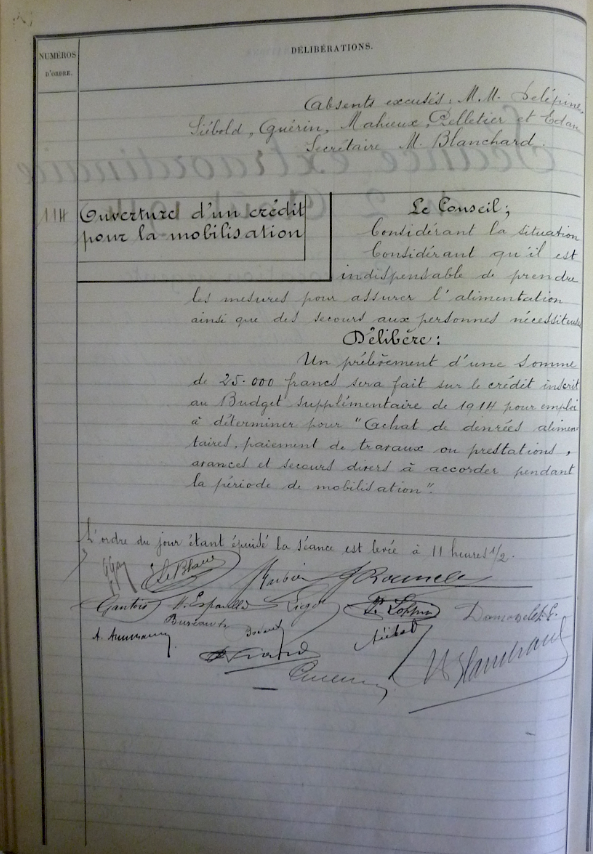 NUMÉROS
D'ORDRE.
DÉLIBÉRATIONS.
Absents excusés : M.M. Delépine,
Siébold, Guérin, Maheux, Pelletier et
Secrétaire M. Blanchard.
114
Ouverture d'un crédit
pour la mobilisation
Le Conseil ;
Considérant la situation
Considérant qu'il est
indispensable de prendre
les mesures pour assurer l'alimentation
ainsi que des secours aux personnes nécessiteuses
Délibère :
Un prélèvement d'une somme
de 25.000 francs sera fait sur le crédit inscrit
au Budget supplémentaire de 1914 pour emploi
à déterminer pour "Achat de denrées alimen
taires, paiement de travaux ou prestations,
avances et secours divers à accorder pendant
la période de mobilisation".
L'ordre du jour étant épuisé la séance est levée à 11 heures 1/2.
Le Blanc
Gautier
Siébold
Blanchard